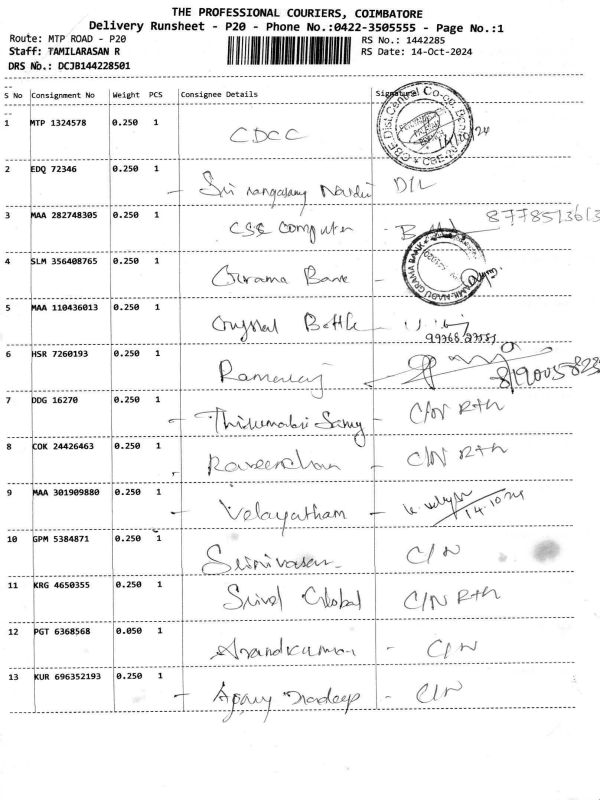 THE PROFESSIONAL COURIERS, COIMBATORE
Delivery Runsheet - P20 - Phone No.:0422-3505555 - Page No.:1
Route: MTP ROAD - P20
RS No.: 1442285
Staff: TAMILARASAN R
RS Date: 14-Oct-2024
DRS No.: DCJB144228501
S No Consignment No Weight PCS Consignee Details Signature
1 MTP 1324578 0.250 1 CDCC 14/10/24
2 EDQ 72346 0.250 1 - Sri rangasamy Naidu D/L
3 MAA 282748305 0.250 1 CSS Computer - 8778513613
4 SLM 356408765 0.250 1 Grama Bank -
5 MAA 110436013 0.250 1 Crystal Bottle
6 HSR 7260193 0.250 1 Ramaraj
7 DDG 16270 0.250 1 - Thirumalai Samy - C/N R+n
8 COK 24426463 0.250 1 - Raveendran - C/N R+n
9 MAA 301909880 0.250 1 - Velayutham - 14.10.24
10 GPM 5384871 0.250 1 Srinivasan C/N
11 KRG 4650355 0.250 1 Global C/N R+n
12 PGT 6368568 0.050 1 Anandkumar - C/N
13 KUR 696352193 0.250 1 - Ajay Pradeep - C/N